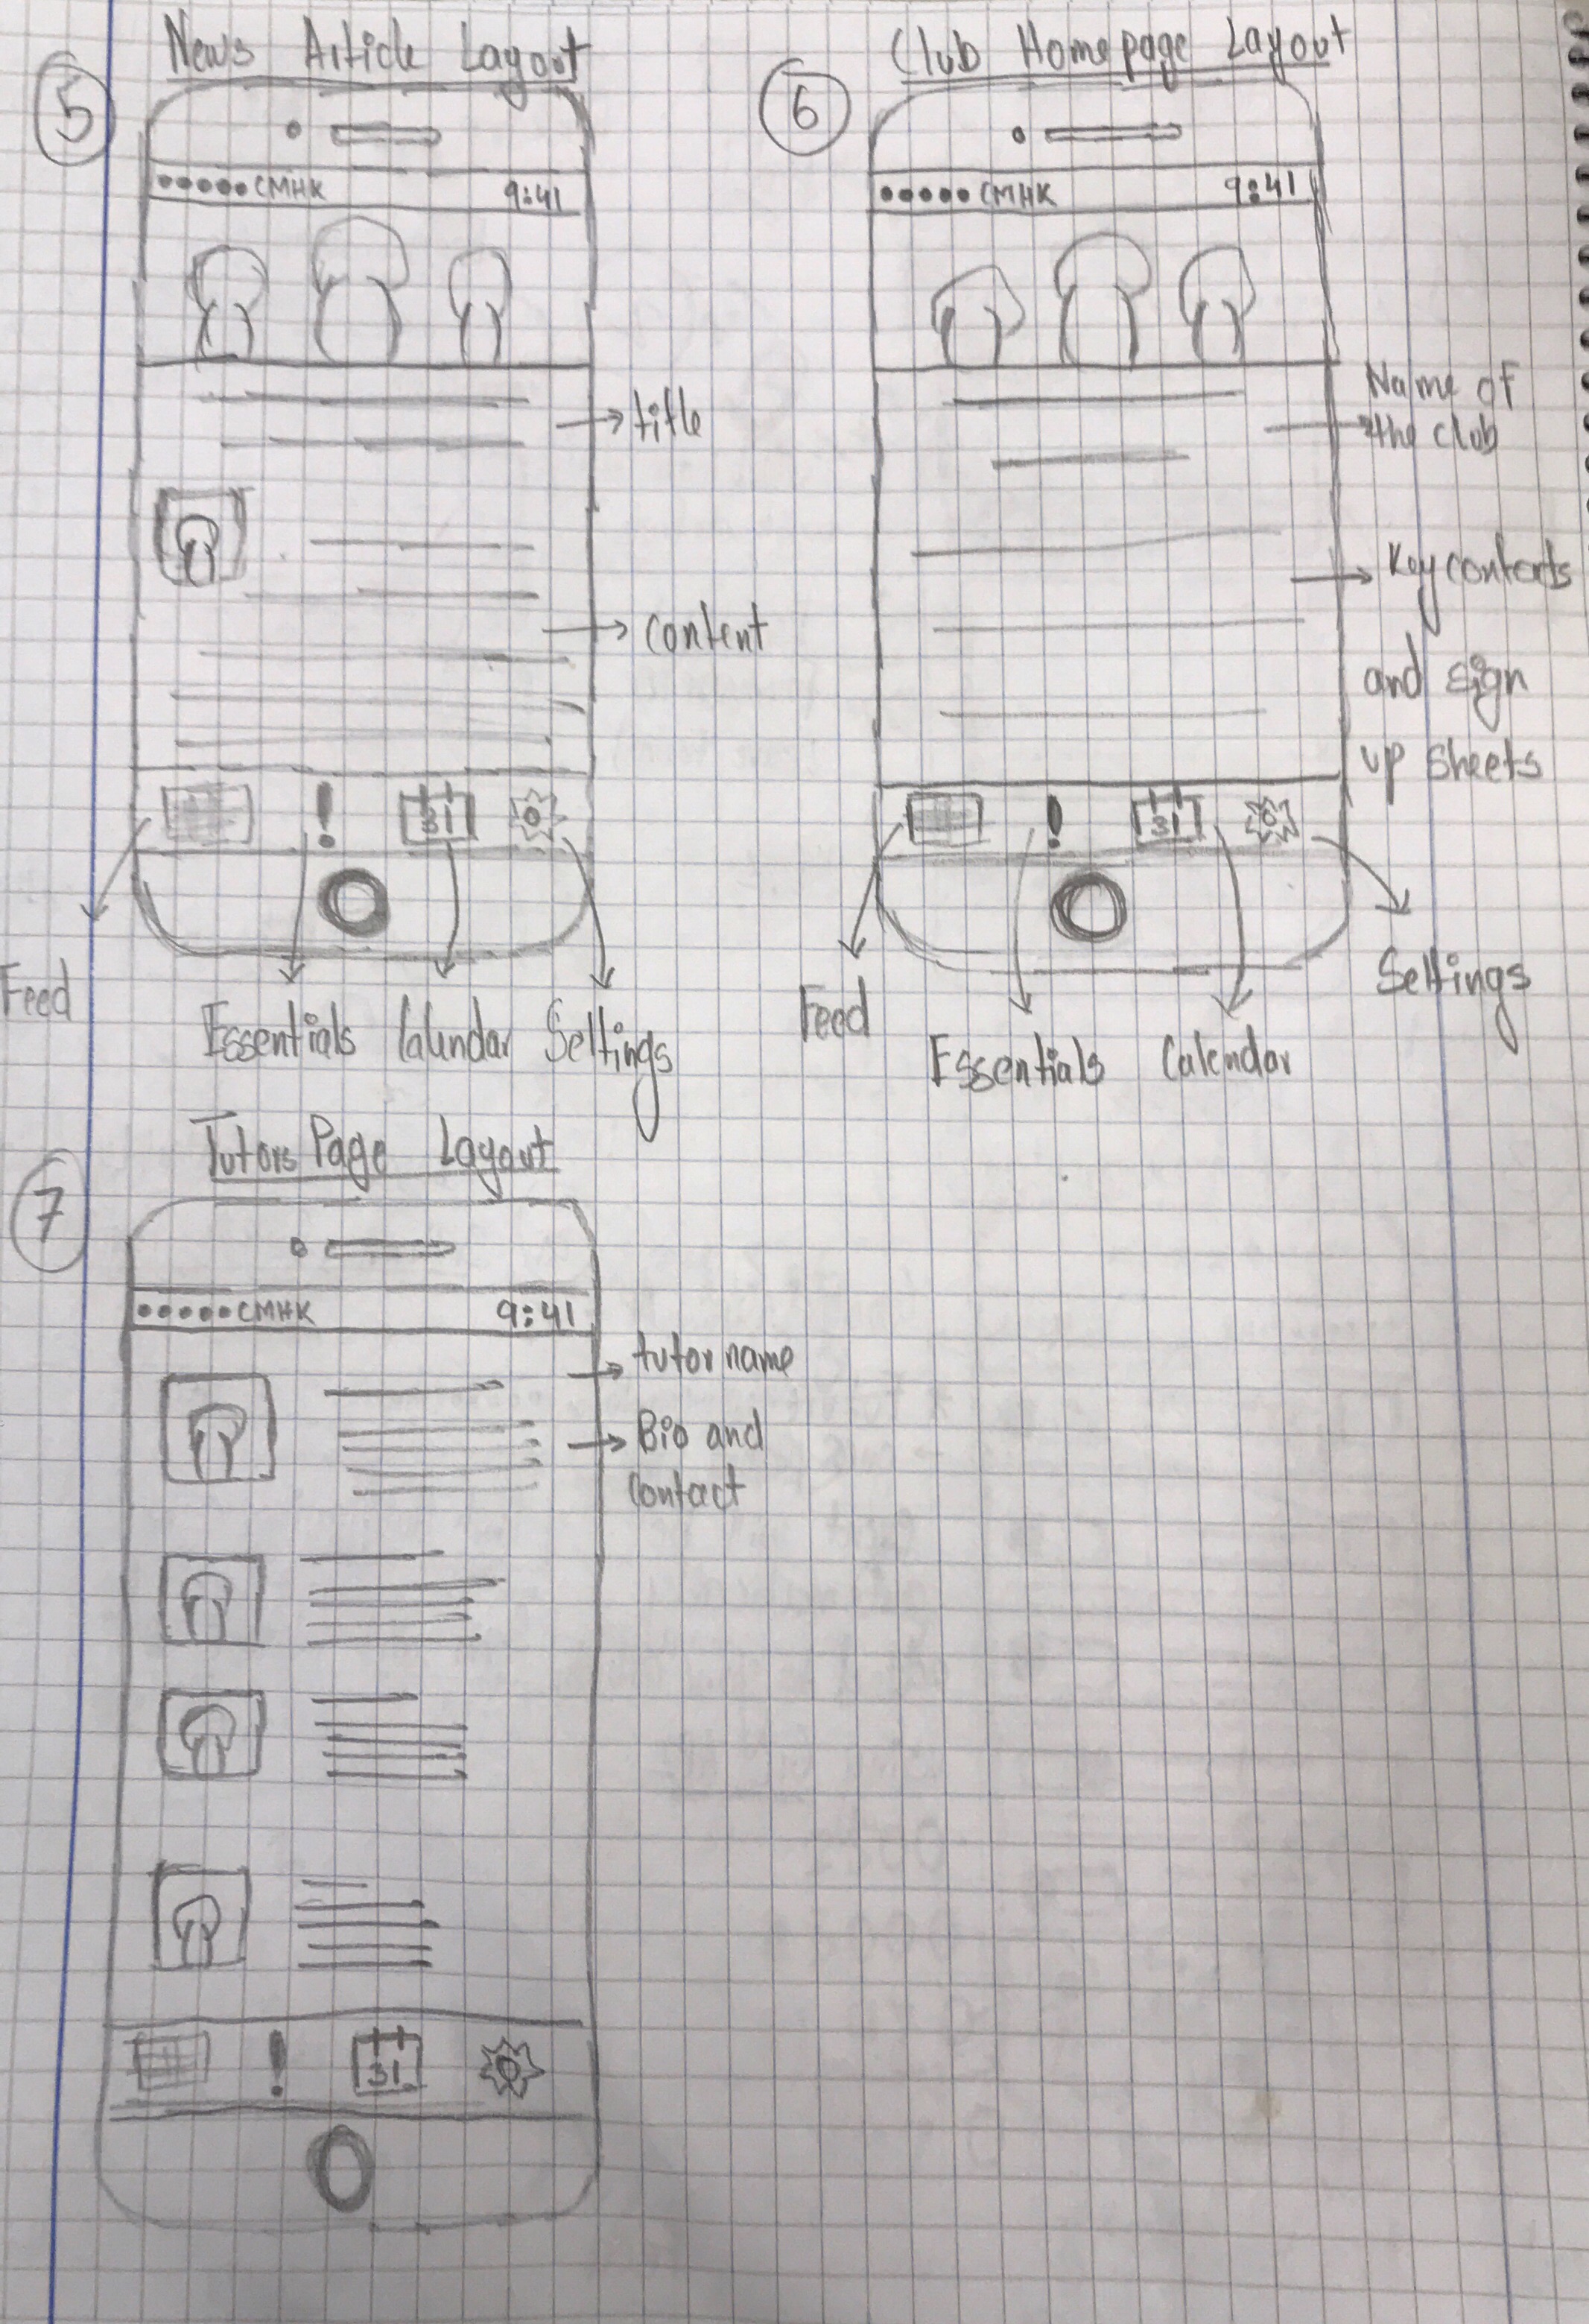 News Article Layout
5
•••••CMHK 9:41
title
content
31
Feed
Essentials Calendar Settings
Club Homepage Layout
6
•••••CMHK 9:41
Name of
the club
Key contacts
and sign
up sheets
31
Feed
Essentials Calendar
Settings
Tutors Page Layout
7
•••••CMHK 9:41
tutor name
Bio and
contact
31